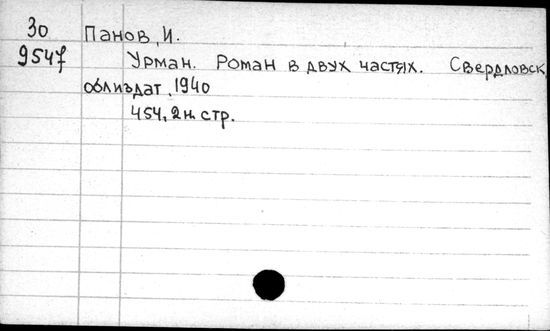 30 Панов, И.
9547 Урман. Роман в двух частях. Свердловск,
облиздат, 1940
454, 2 н. стр.